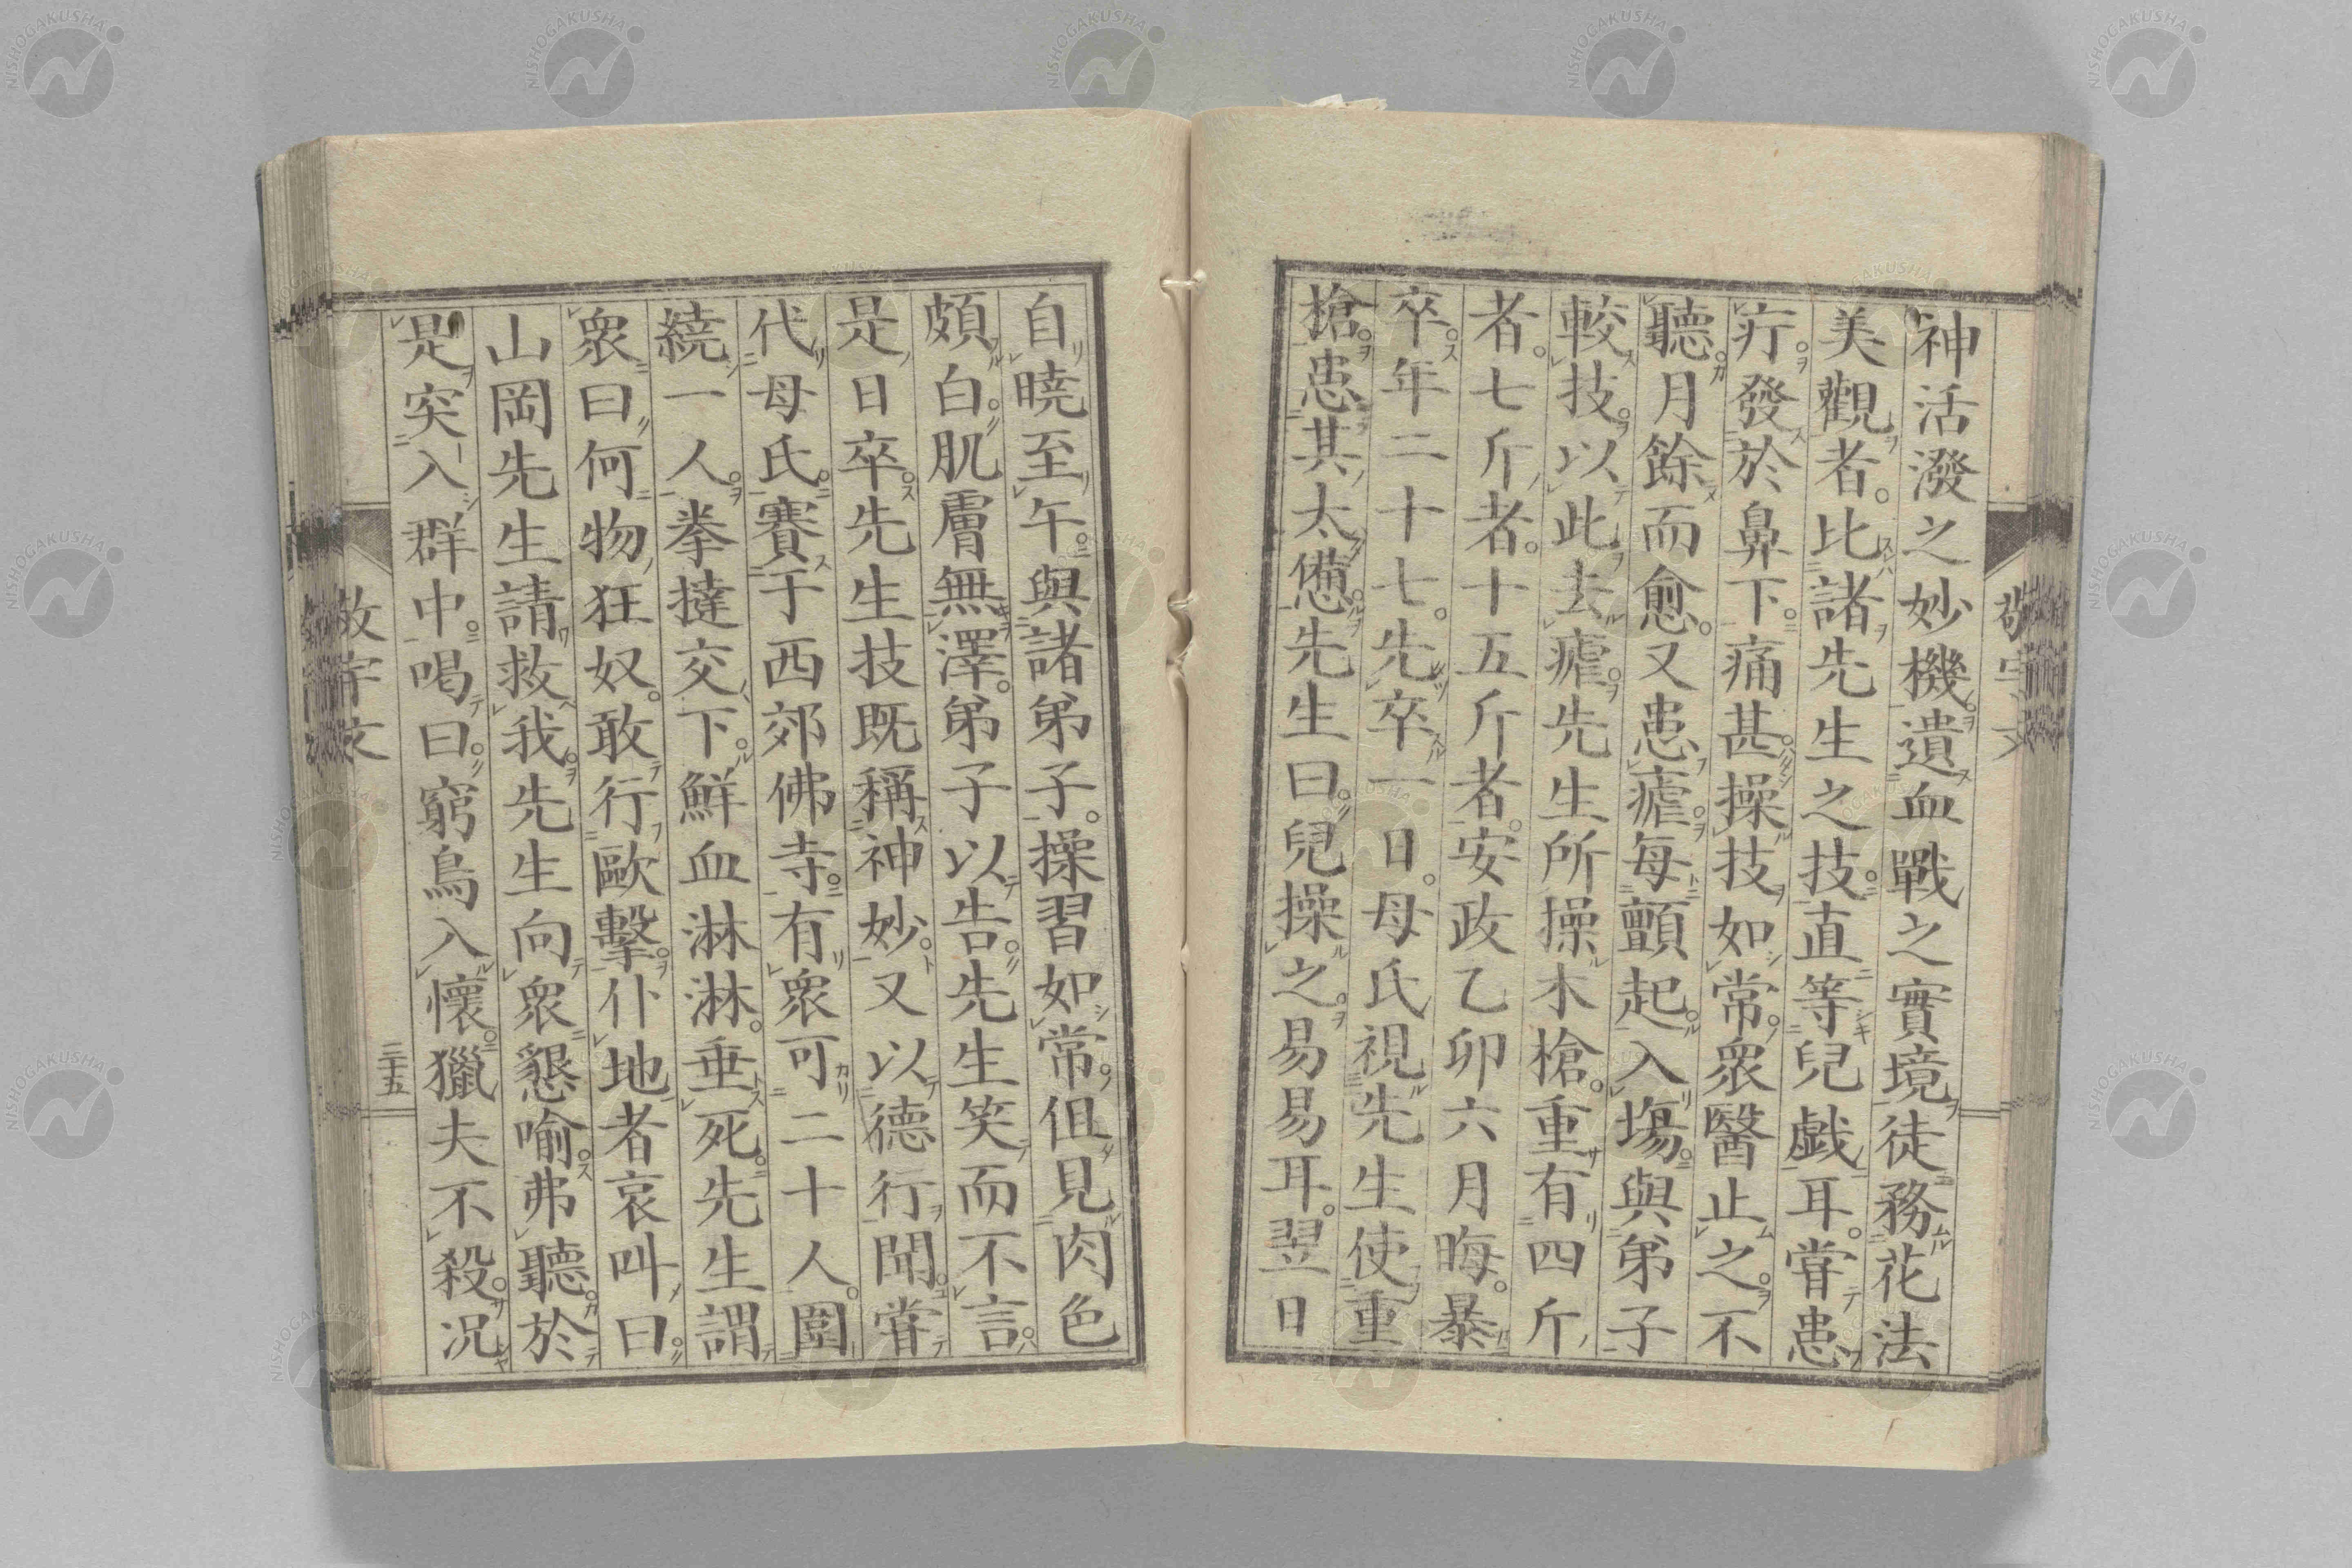 神活潑之妙機遺血戰之實境徒務花法
美觀者。比諸先生之技。直等兒戲耳。嘗患
疔。發於鼻下。痛甚。操技如常。衆醫止之。不
聽。月餘而愈。又患瘧。每顫起。入場。與弟子
較技。以此去瘧。先生所操木槍。重有四斤
者。七斤者。十五斤者。安政乙卯六月晦。暴
卒。年二十七。先卒一日。母氏視先生使重
槍。患其太憊。先生曰。兒操之。易易耳。翌日
自曉至午。與諸弟子。操習如常。但見肉色
頗白。肌膚無澤。弟子以告。先生笑而不言。
是日卒。先生技既稱神妙。又以德行聞。嘗
代母氏。賽于西郊佛寺。有衆可二十人。圍
繞一人。拳撻交下。鮮血淋淋。垂死。先生謂
衆曰。何物狂奴。敢行歐擊。仆地者哀叫曰。
山岡先生請救我。先生向衆懇喻。弗聽。於
是突入群中。喝曰。窮鳥入懷。獵夫不殺。况
敬宇文
三十五